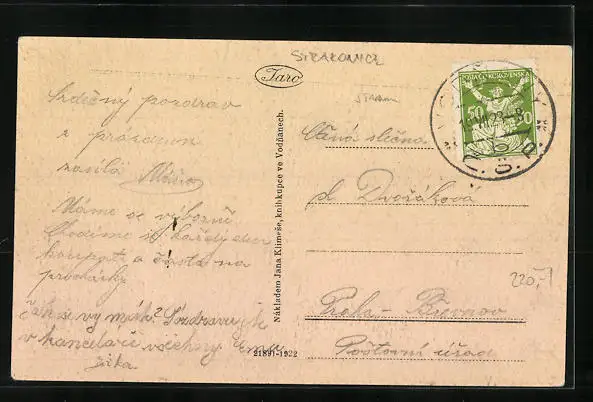 STRAKONICE
Taro
Srdečný pozdrav
z prázdnin
zasílá Máňa
Máme se výborně
Chodíme se každý den
koupat a často na
procházky
se vy máte? Pozdravujte
v kanceláři všechny
Nákladem Jana Klimeše, knihkupce ve Vodňanech.
21891-1922
POŠTA ČESKOSLOVENSKA
50
Ctěná slečna
sl. Dvořáková
Praha - Břevnov
Poštovní úřad
220,-